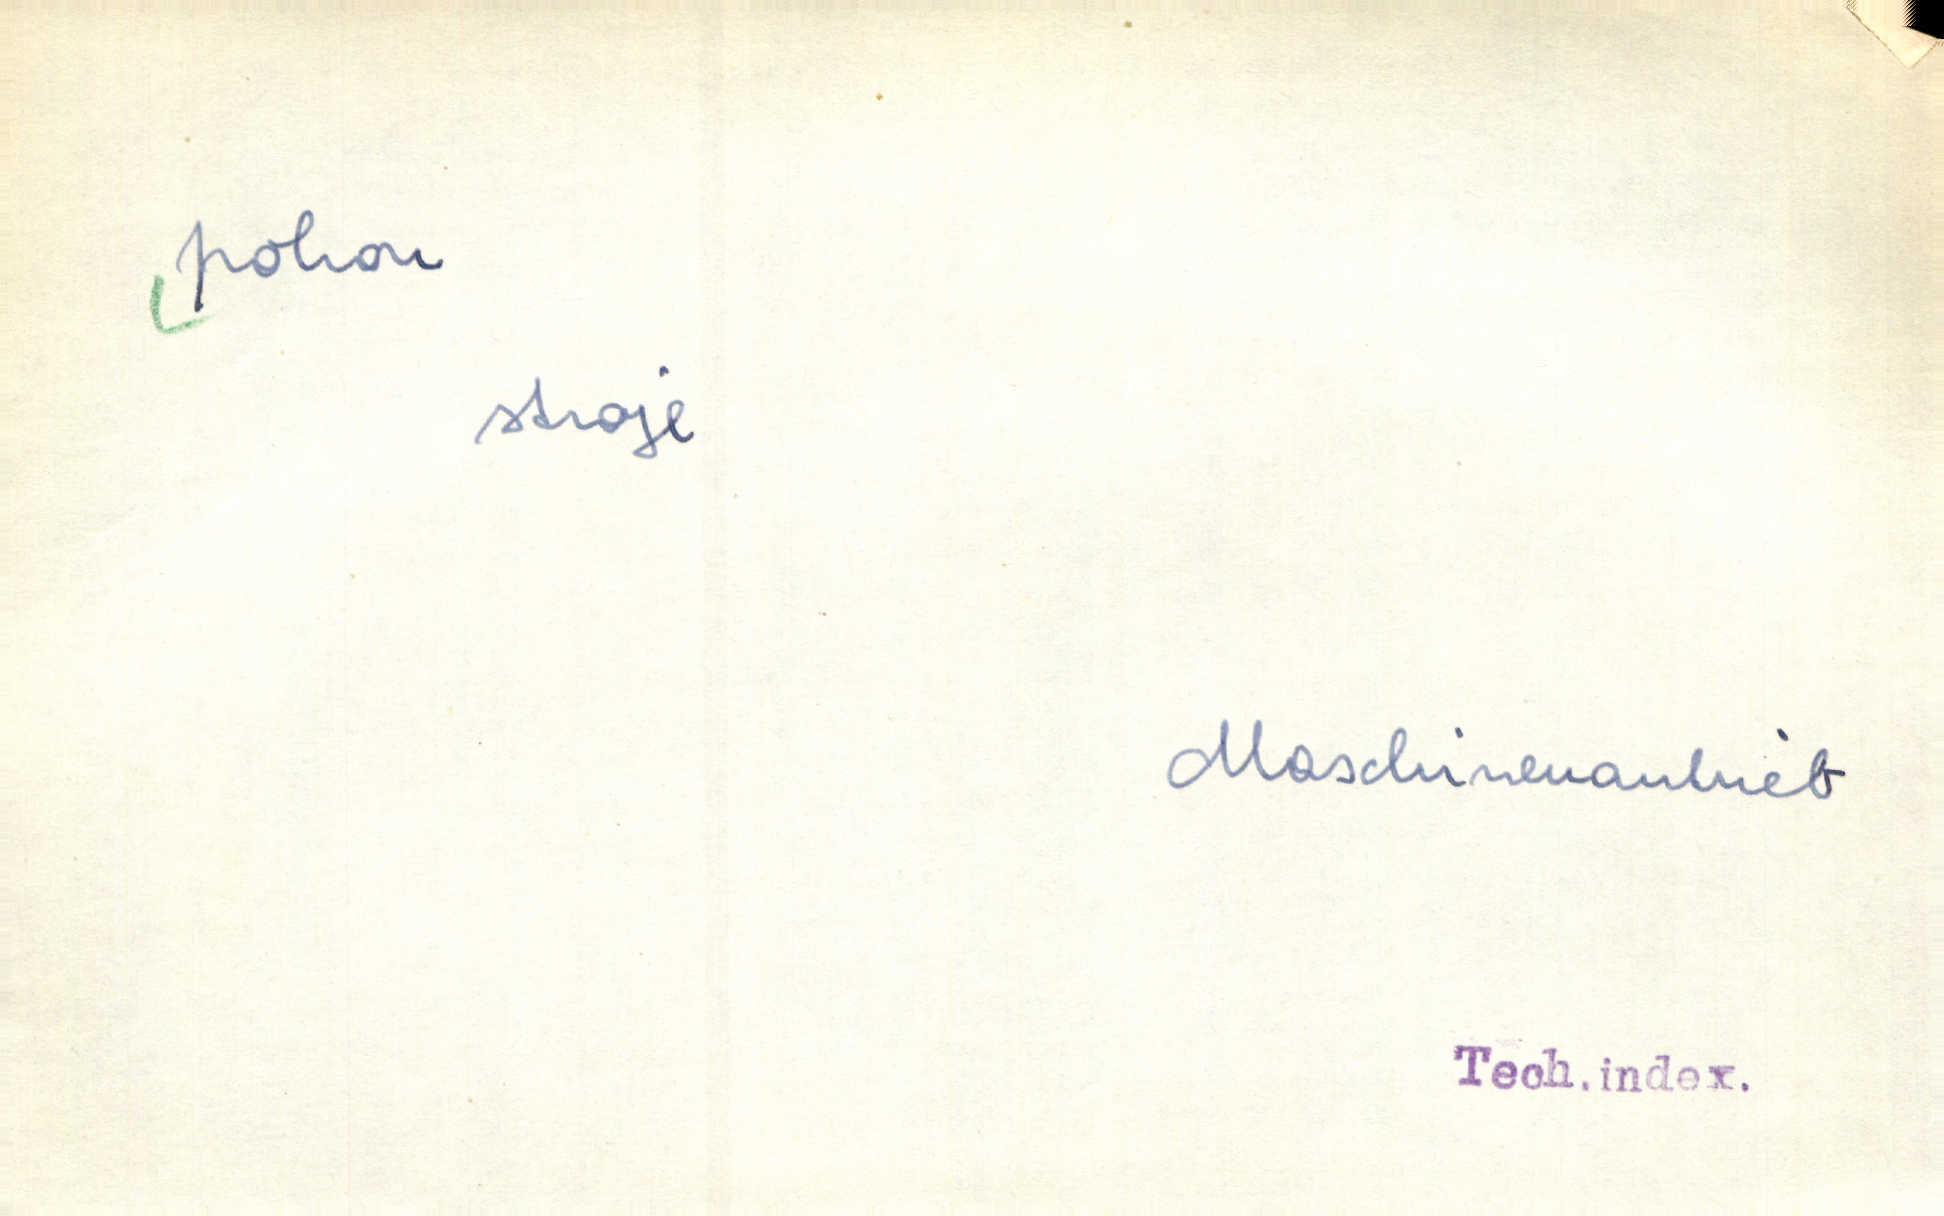 pohon
stroje
Maschinenantrieb
Tech.index.